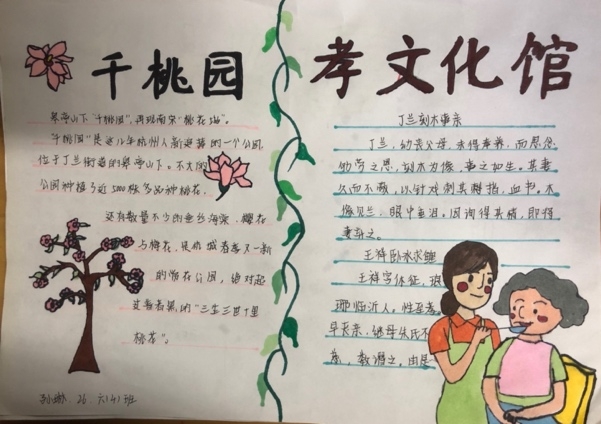 千桃园
皋亭山下"千桃园",再现南宋"桃花海"。
"千桃园"是这几年杭州人新追捧的一个公园,
位于丁兰街道的皋亭山下。不大的
公园种植了近5000株多品种桃花,
还有数量不少的垂丝海棠、樱花
与梅花,是杭城看春又一新
的赏花公园,绝对起
这番春景的"三生三世十里
桃花"。
六(4)班
孝文化馆
丁兰刻木事亲
丁兰,幼丧父母,未得奉养,而思念
劬劳之恩,刻木为像,事之如生。其妻
久而不敬,以针戏刺其指,血出。木
像见兰,眼中垂泪。因询得其情,即将
妻弃之。
王祥卧冰求鲤
王祥字休征,琅
琊临沂人。性至孝
早丧亲,继母朱氏不
慈,数谮之,由是